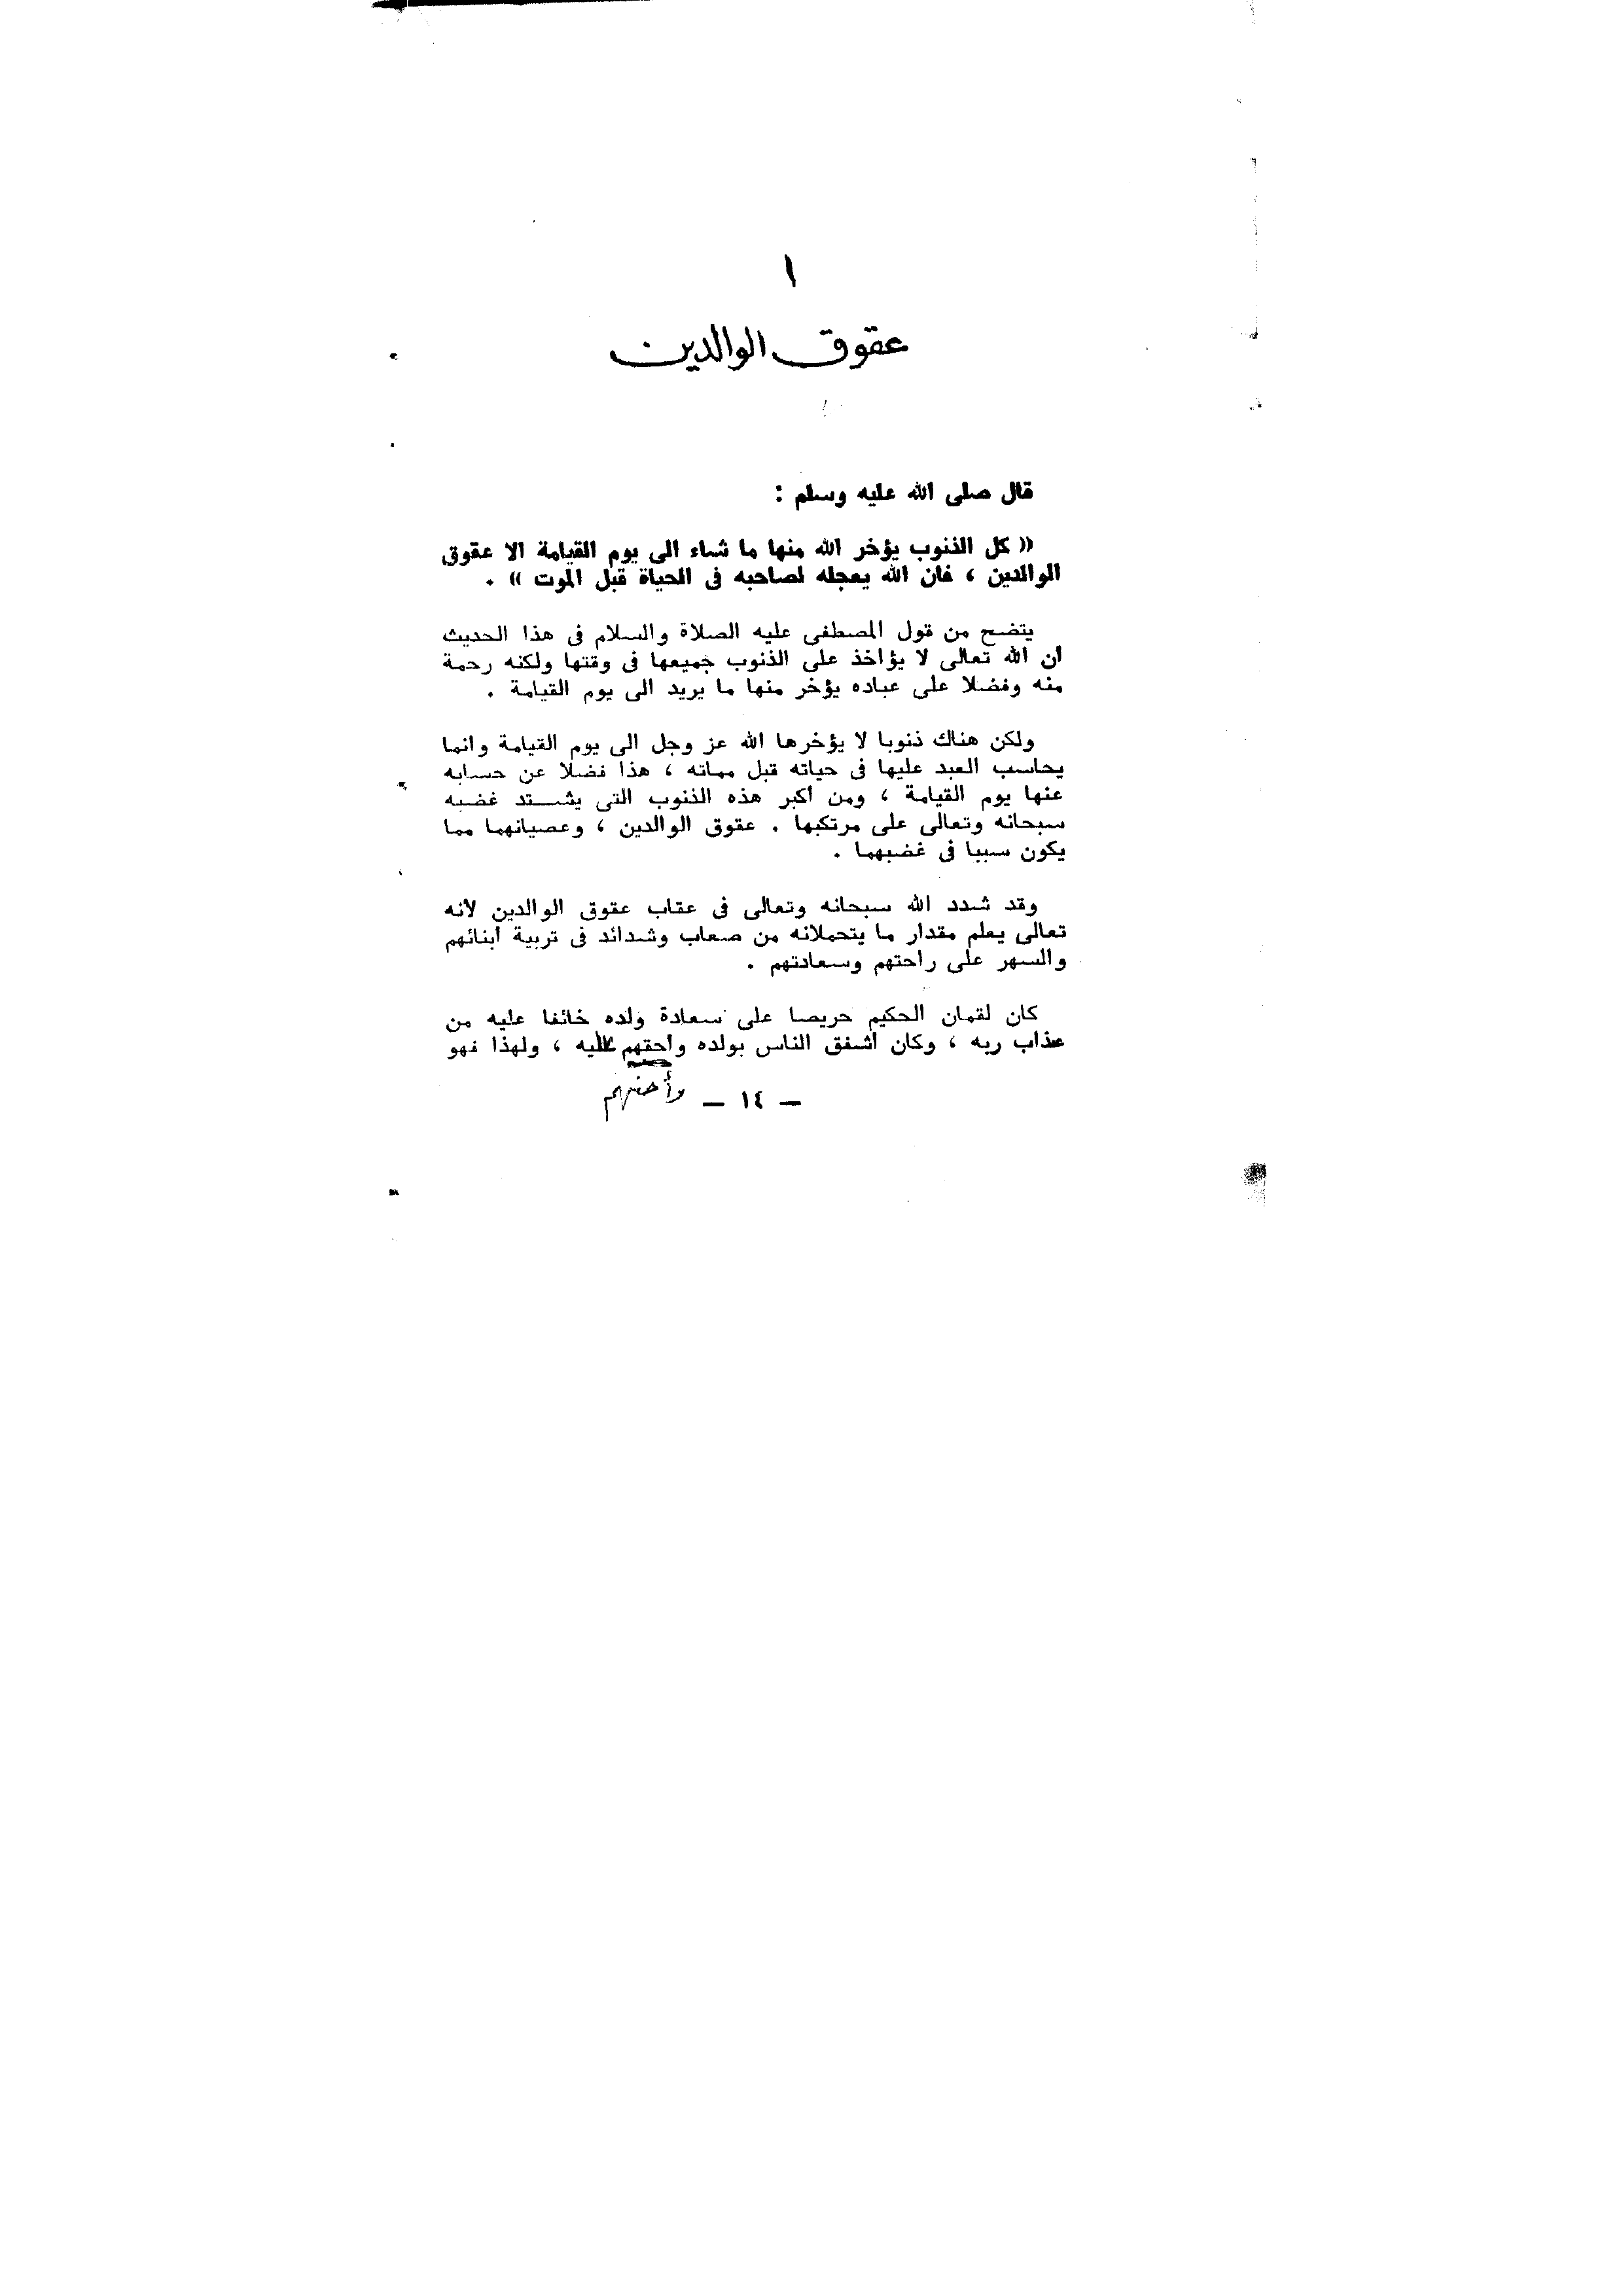 ١
عقوق الوالدين
قال صلى الله عليه وسلم :
(( كل الذنوب يؤخر الله منها ما شاء الى يوم القيامة الا عقوق
الوالدين ، فان الله يعجله لصاحبه فى الحياة قبل الموت )) .
يتضح من قول المصطفى عليه الصلاة والسلام فى هذا الحديث
أن الله تعالى لا يؤاخذ على الذنوب جميعها فى وقتها ولكنه رحمة
منه وفضلا على عباده يؤخر منها ما يريد الى يوم القيامة .
ولكن هناك ذنوبا لا يؤخرها الله عز وجل الى يوم القيامة وانما
يحاسب العبد عليها فى حياته قبل مماته ، هذا فضلا عن حسابه
عنها يوم القيامة ، ومن أكبر هذه الذنوب التى يشتد غضبه
سبحانه وتعالى على مرتكبها . عقوق الوالدين ، وعصيانهما مما
يكون سببا فى غضبهما .
وقد شدد الله سبحانه وتعالى فى عقاب عقوق الوالدين لأنه
تعالى يعلم مقدار ما يتحملانه من صعاب وشدائد فى تربية أبنائهم
والسهر على راحتهم وسعادتهم .
كان لقمان الحكيم حريصا على سعادة ولده خائفا عليه من
عذاب ربه ، وكان أشفق الناس بولده وأحقهم عليه ، ولهذا فهو
وأحنهم
— ١٤ —